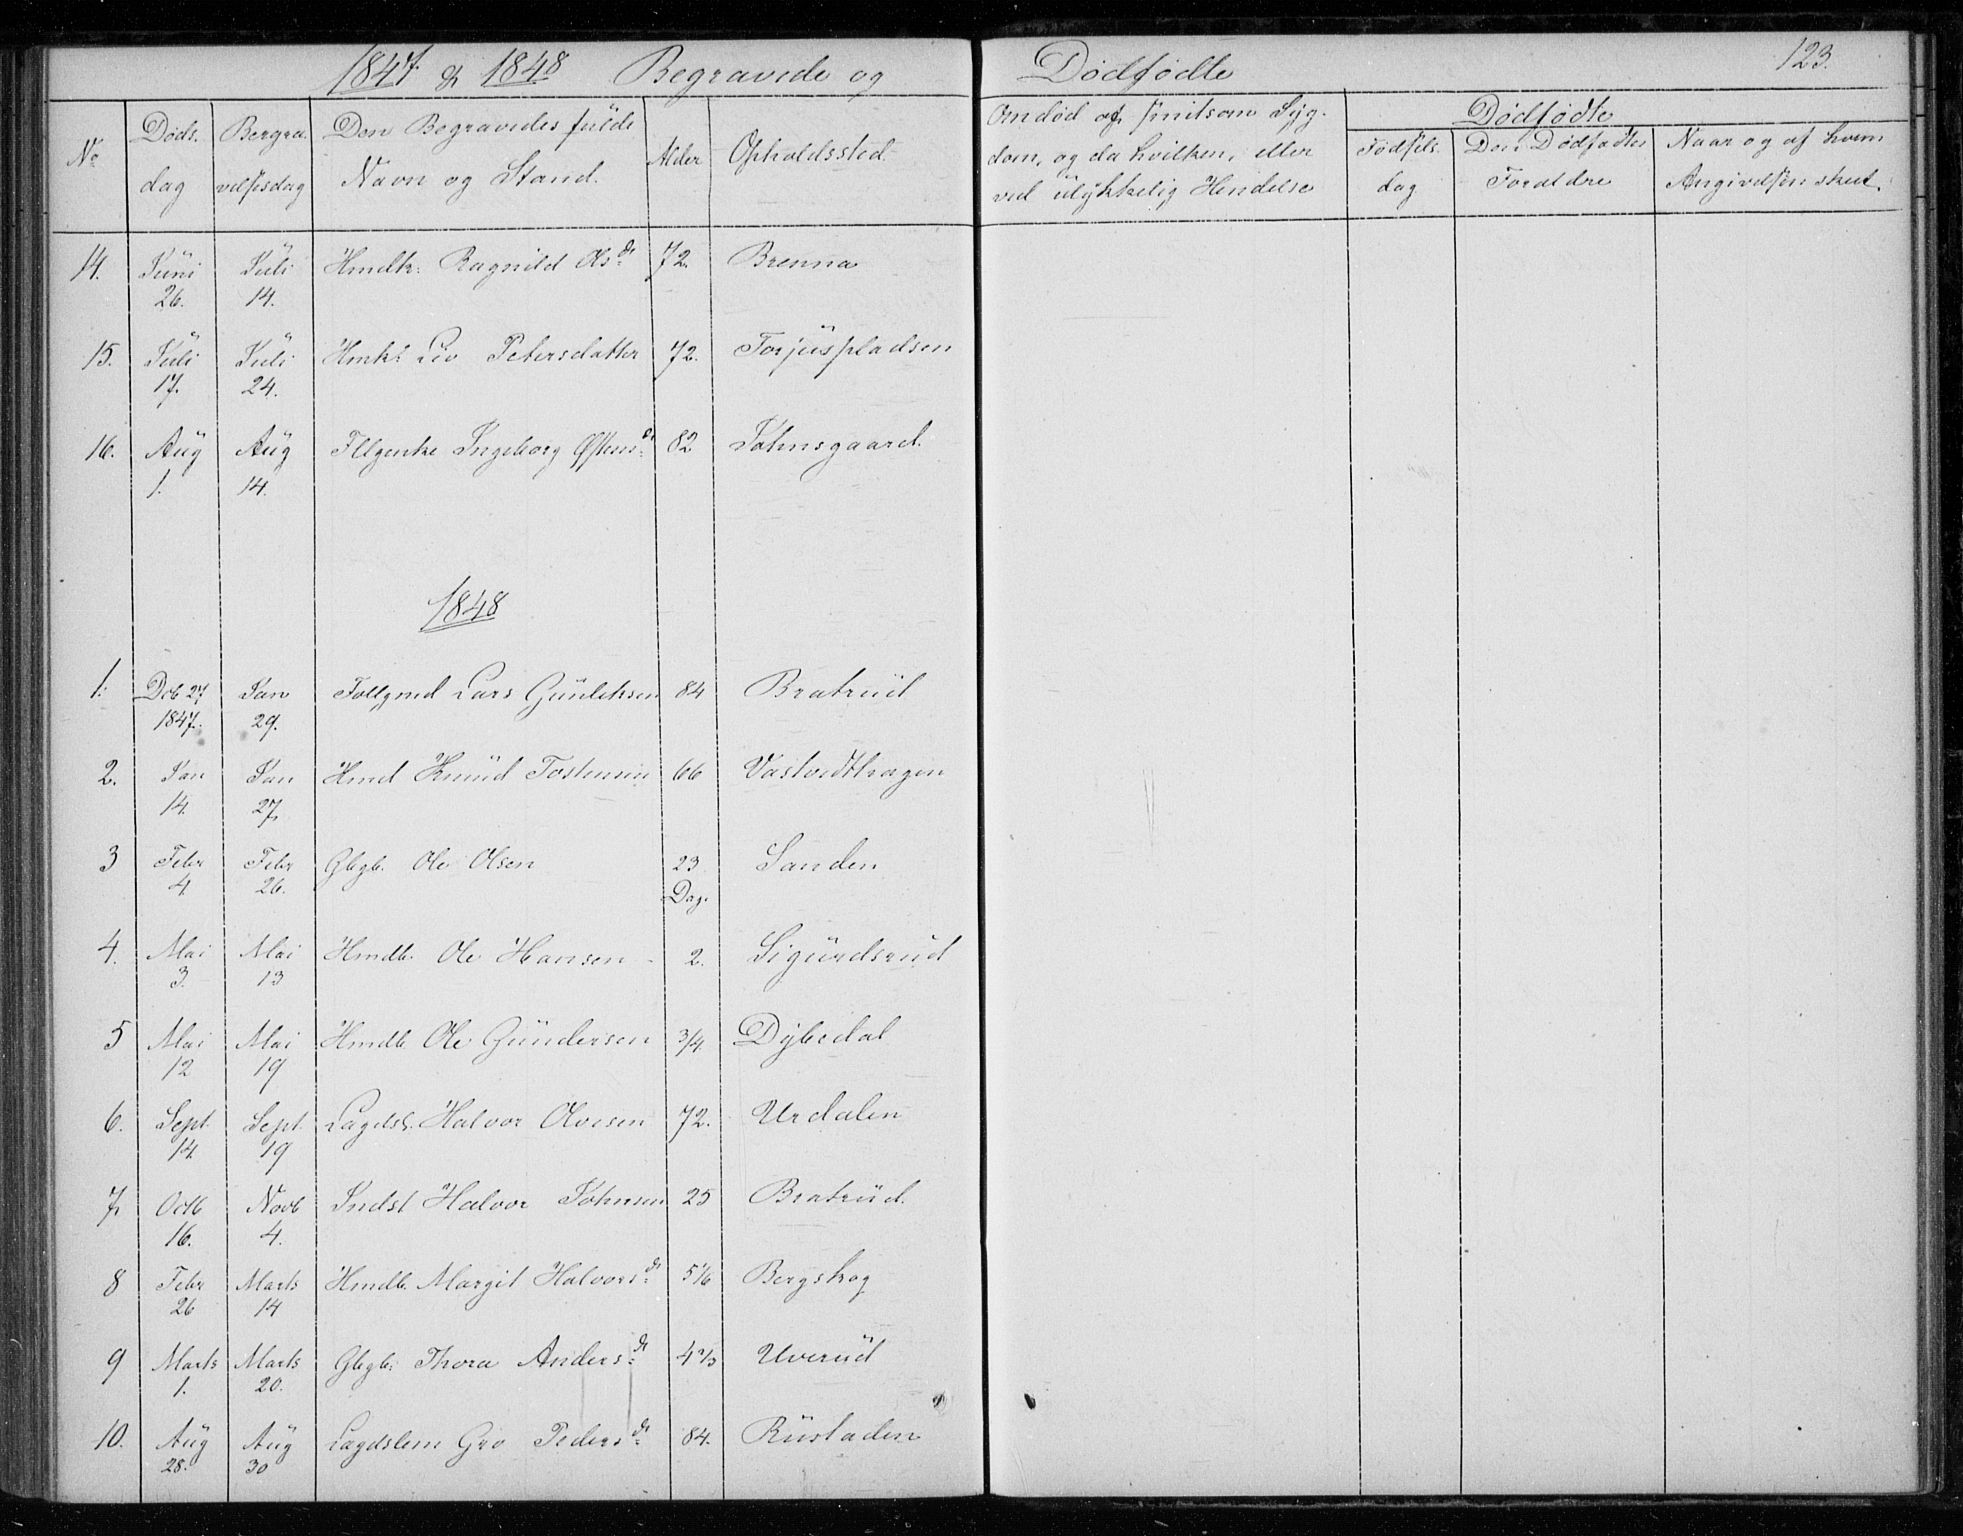 1847 & 1848 Begravede og Dødfødte 123.
No Døds. dag Bergravelsesdag Den Begravedes fulde Navn og Stand. Alder Opholdssted
Om død af smitsom Syg-
dom, og da hvilken, eller
ved ulykkelig Hendelse
Dødfødte
Fødsels dag Den Dødfødtes Foraldre Naar og af hvem Angivelsen skeet.
14. Juni 26. Juli 14. Hmdk. Ragnild Olsdr 72. Brenna
15. Juli 17. Juli 24. Hmk: Liv Petersdatter 72. Torjuspladsen
16. Aug 1. Aug 14. Ingeborg Østensdr 82 Johnsgaard.
1848
1. Deb 27 1847. Jan 29. Lars Gunleksen 84 Bratrud
2. Jan 14. Jan 27. Hmd Knud Tostensen 66 Vastvedthagen
3 Febr 4 Febr 26. Gbgb. Ole Olsen 23 Dag. Sanden
4. Mai 3. Mai 13 Hmdb. Ole Hansen 2. Sigurdsrud
5 Mai 12 Mai 19 Hmdb Ole Gundersen 3/4. Dybedal
6. Sept. 14 Sept. 19 Lagdsl. Halvor Olvesen 72. Urdalen
7. Octb 16. Novb 4. Indst Halvor Johnsen 25 Bratrud.
8 Febr 26 Marts 14 Hmdb. Margit Halvorsdr 5 1/6 Bergskog
9 Marts 1. Marts 20. Gbgb. Thora Andersdr 4 2/3 Uverud
10. Aug 28. Aug 30 Lagdslem Gro Pedersdr 84. Rustaden